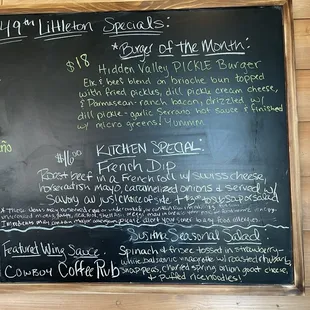 49th Littleton Specials:
*Burger of the Month:
$18
Hidden Valley PICKLE Burger
Elk & beef blend on brioche bun topped
with fried pickles, dill pickle cream cheese,
& Parmesan-ranch bacon, drizzled w/
dill pickle-garlic Serrano hot sauce & finished
w/ micro greens! Yummm
KITCHEN SPECIAL:
$16
French Dip
Roast beef in a French roll w/ swiss cheese,
horseradish mayo, caramelized onions & served w/
Savory au jus! choice of side
Susina Seasonal Salad
Featured Wing Sauce
Spinach & frisee tossed in strawberry-
white balsamic vinaigrette w/ roasted rhubarb,
Cowboy Coffee Rub
snap peas, charred spring onion, goat cheese,
& Puffed rice noodles!